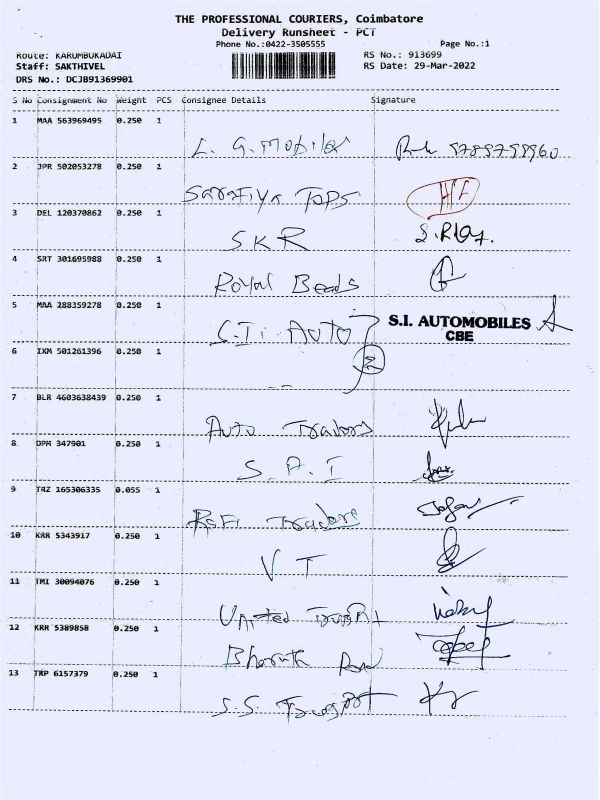 THE PROFESSIONAL COURIERS, Coimbatore
Delivery Runsheet - PCT
Phone No.:0422-3505555 Page No.:1
Route: KARUMBUKADAI RS No.: 913699
Staff: SAKTHIVEL RS Date: 29-Mar-2022
DRS No.: DCJB91369901
S No Consignment No Weight PCS Consignee Details Signature
1 MAA 563969495 0.250 1
L. G. Mobiles
2 JPR 502053278 0.250 1
Tops
3 DEL 120370862 0.250 1
SKR
4 SRT 301695988 0.250 1
Royal Beads
5 MAA 288359278 0.250 1
S.I. AUTOMOBILES
CBE
Auto
6 IXM 501261396 0.250 1
2
7 BLR 4603638439 0.250 1
Auto Traders
8. DPM 347901 0.250 1
S. A. I
9 TRZ 165306335 0.055 1
Traders
10 KRR 5343917 0.250 1
V T
11 TMI 30094076 0.250 1
United
12 KRR 5389858 0.250 1
13 TRP 6157379 0.250 1
S.S.